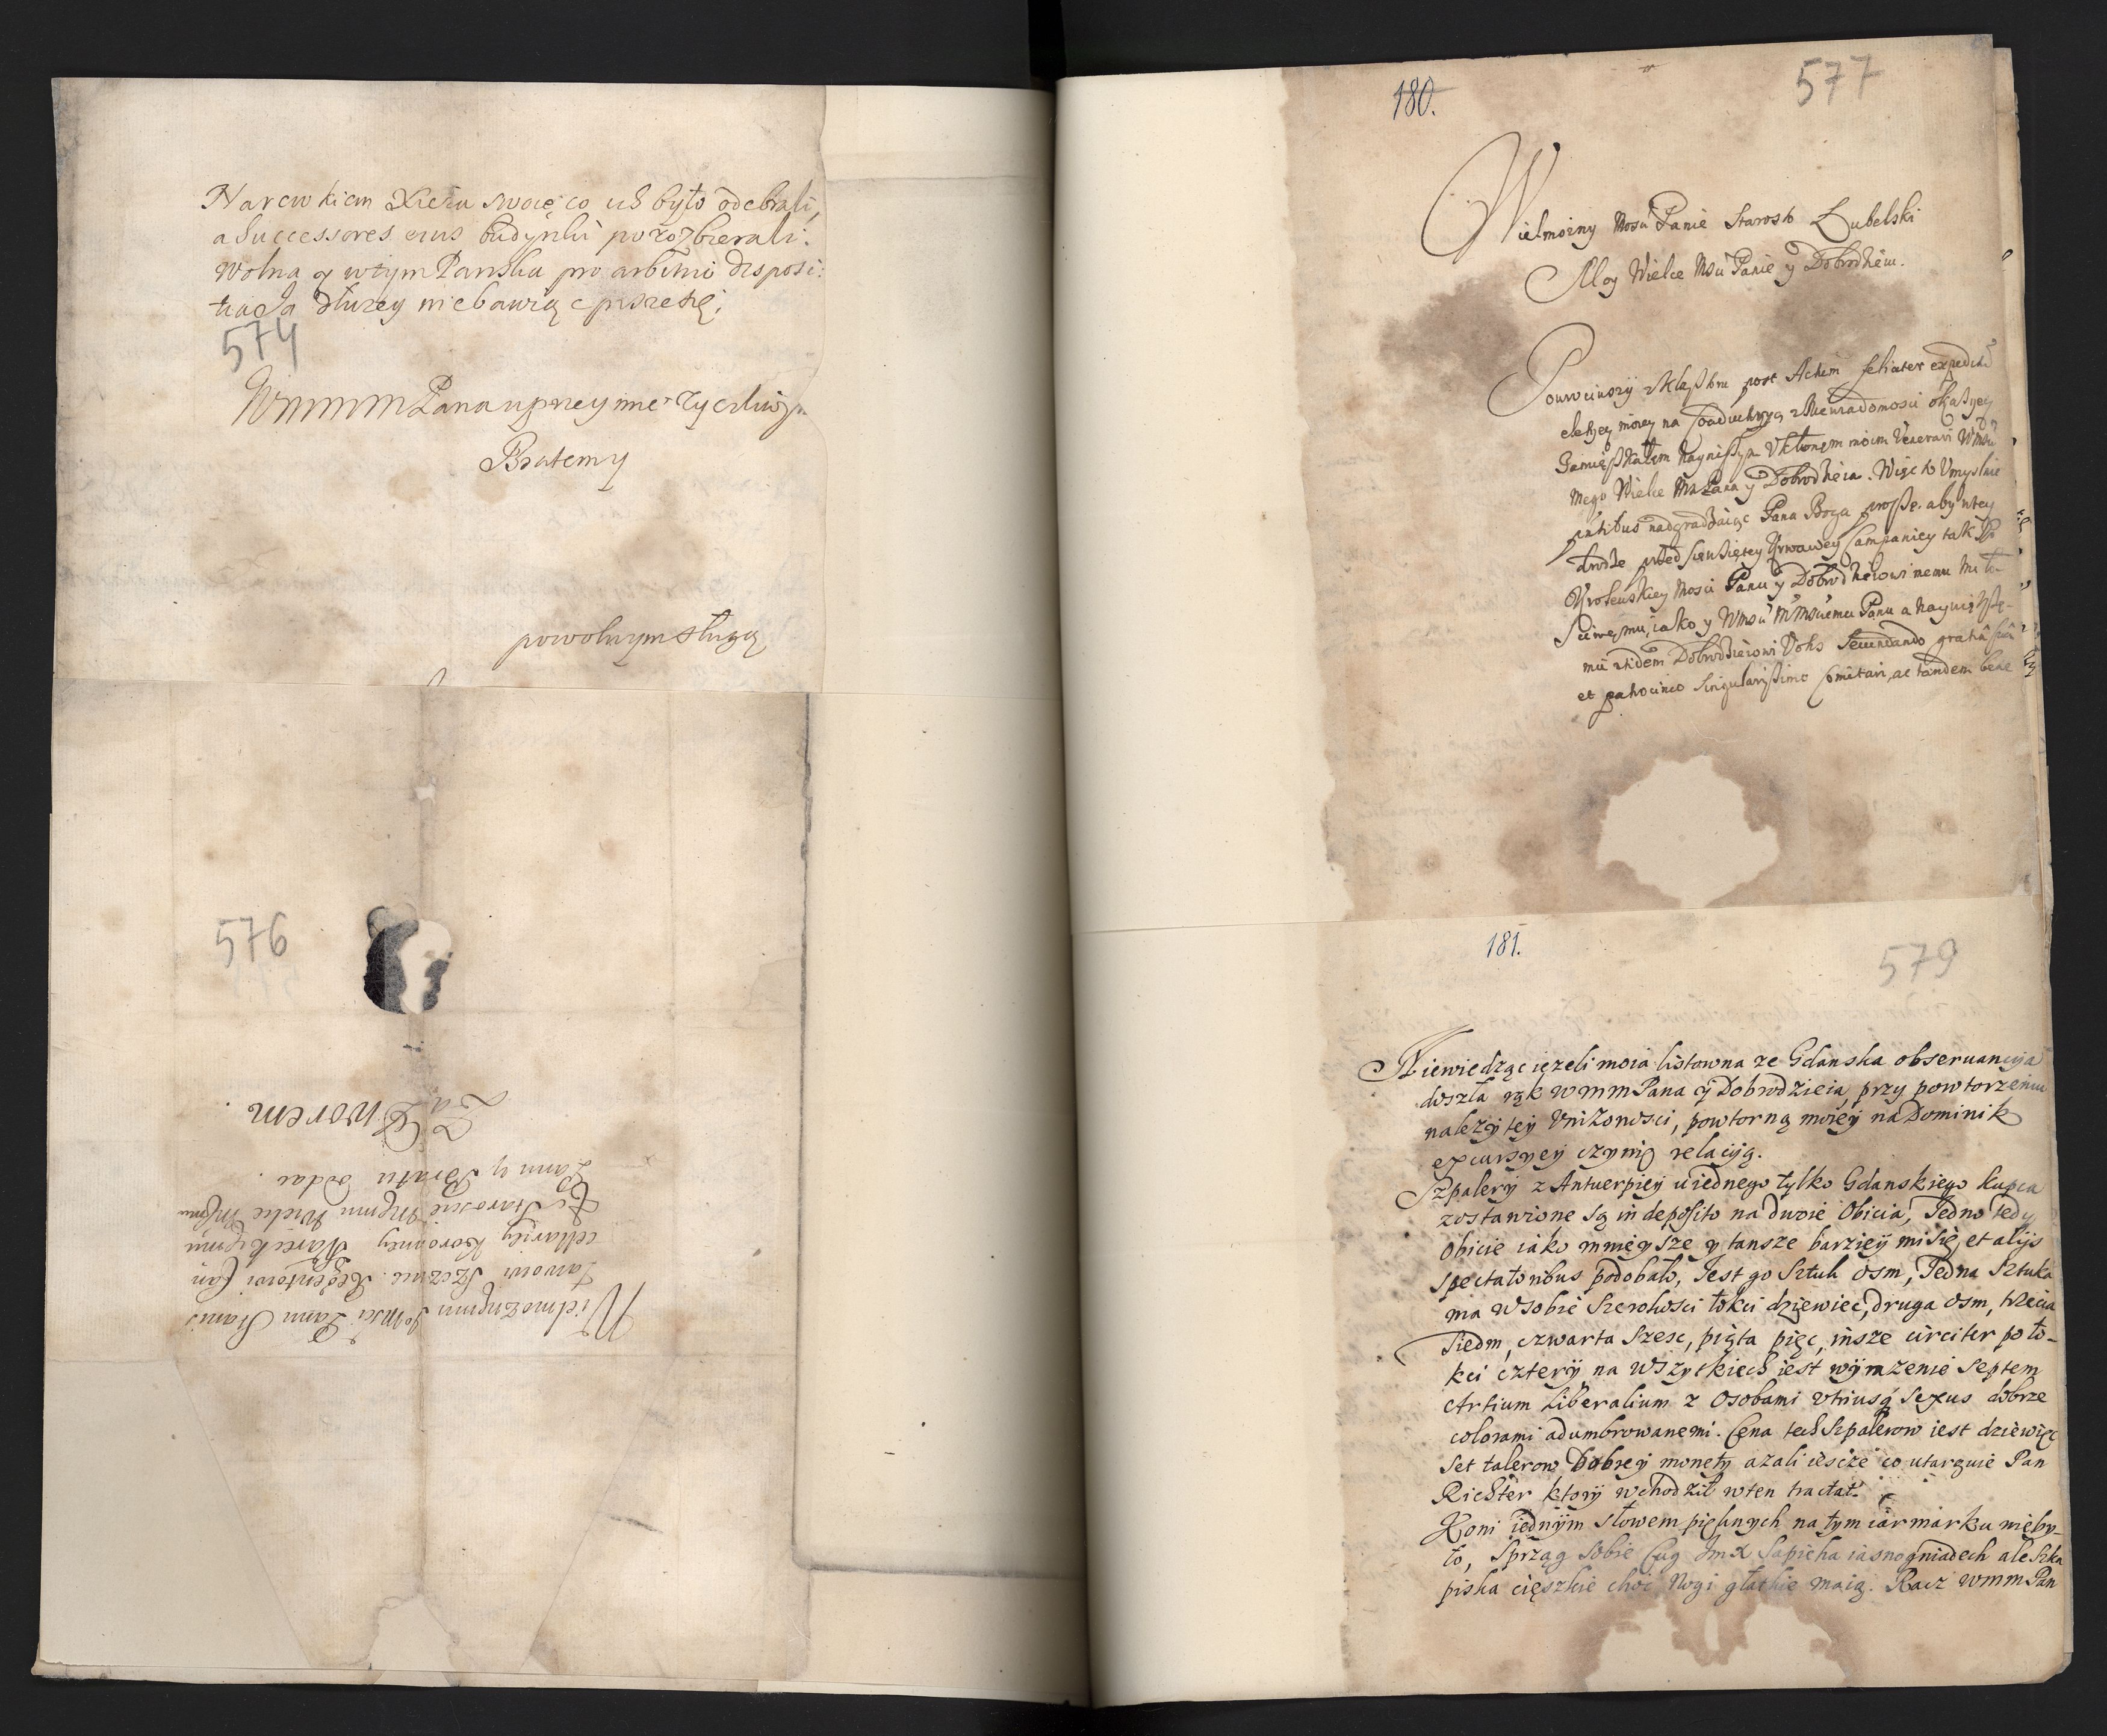 Narewkiem Xieżu swoię co ich było odebrali,
a Successores eius budynki porozbierali.
wolna y w tym Panska pro arbitrio disposi:
tia dłużey nie bawiąc piszesię.
574
Wmmm Pana uprzeymie życzliwym
Bratem y
powolnym sługą
576
Wielmożnymu Jo Msci Panu Stanis
ławowi Szczuce Regentowi Can
cellariey Koronney Narewskiemu
&c Staroscie Memu Wielce Msciwu
Panu y Bratu oddac.
Za Dworem
180.
577
Wielmożny Mosci Panie Starosto Lubelski
Moy Wielce Msci Panie y Dobrodzieiu.
Powrociwszy z Klasztoru post Actum feliciter expeditæ
elekcyey moiey na z niewiadomosci okazyey
zamięszkałem nayniższym Ukłonem moim Venerari Wmsci
mego Wielce Ms Pana y Dobrodzieia. Więc to Umyslnie
nadgradzaiąc Pana Boga proszę. aby w tey
drodze przed sięwzięcey Krwawey Campaniey tak
Krolewskiey Mosci Panu y Dobrodzieiowi memu Miło-
sciwemu, iako y Wmsci Mmsciemu Panu a nayniższe-
mu Dobrodzieiowi Votis Secundando gratiâ suâ
et patrocinio singularissimo comitari, ac tandem bene
181.
579
Niewiedząc ieżeli moia listowna ze Gdanska obseruancyia
doszła rąk wmm Pana y Dobrodzieia, przy powtorzeniu
należytey Uniżonosci, powtorną moiey na Dominik
excursyey czynię relacyią.
Szpalery z Antuerpiey u iednego tylko Gdanskiego kupca
zostawione są in deposito na dwoie Obicia, Jedno tedy
Obicie iako mnieysze y tansze barziey mi się, et alijs
spectatoribus podobało, Jest go sztuk osm, Jedna sztuka
ma w sobie szerokosci łokci dziewiec, druga osm, trzecia
siedm, czwarta szesc, piąta pięc, insze circiter po ło-
kci cztery na wszytkiech iest wyrażenie Septem
Artium Liberalium z Osobami utriusq Sexus dobrze
colorami adumbrowanemi. Cena tech Szpalerow iest dziewięc
set talerow Dobrey monety azali iescze co utarguie Pan
Richter ktory wchodził w ten tractat.
Koni iednym słowem pięknych na tym iarmarku nieby-
ło, sprząg sobie Cug Jmx Sapieha iasnogniadech ale szka
piska cięszkie choc Nogi głatkie maią. Racz wmm Pan